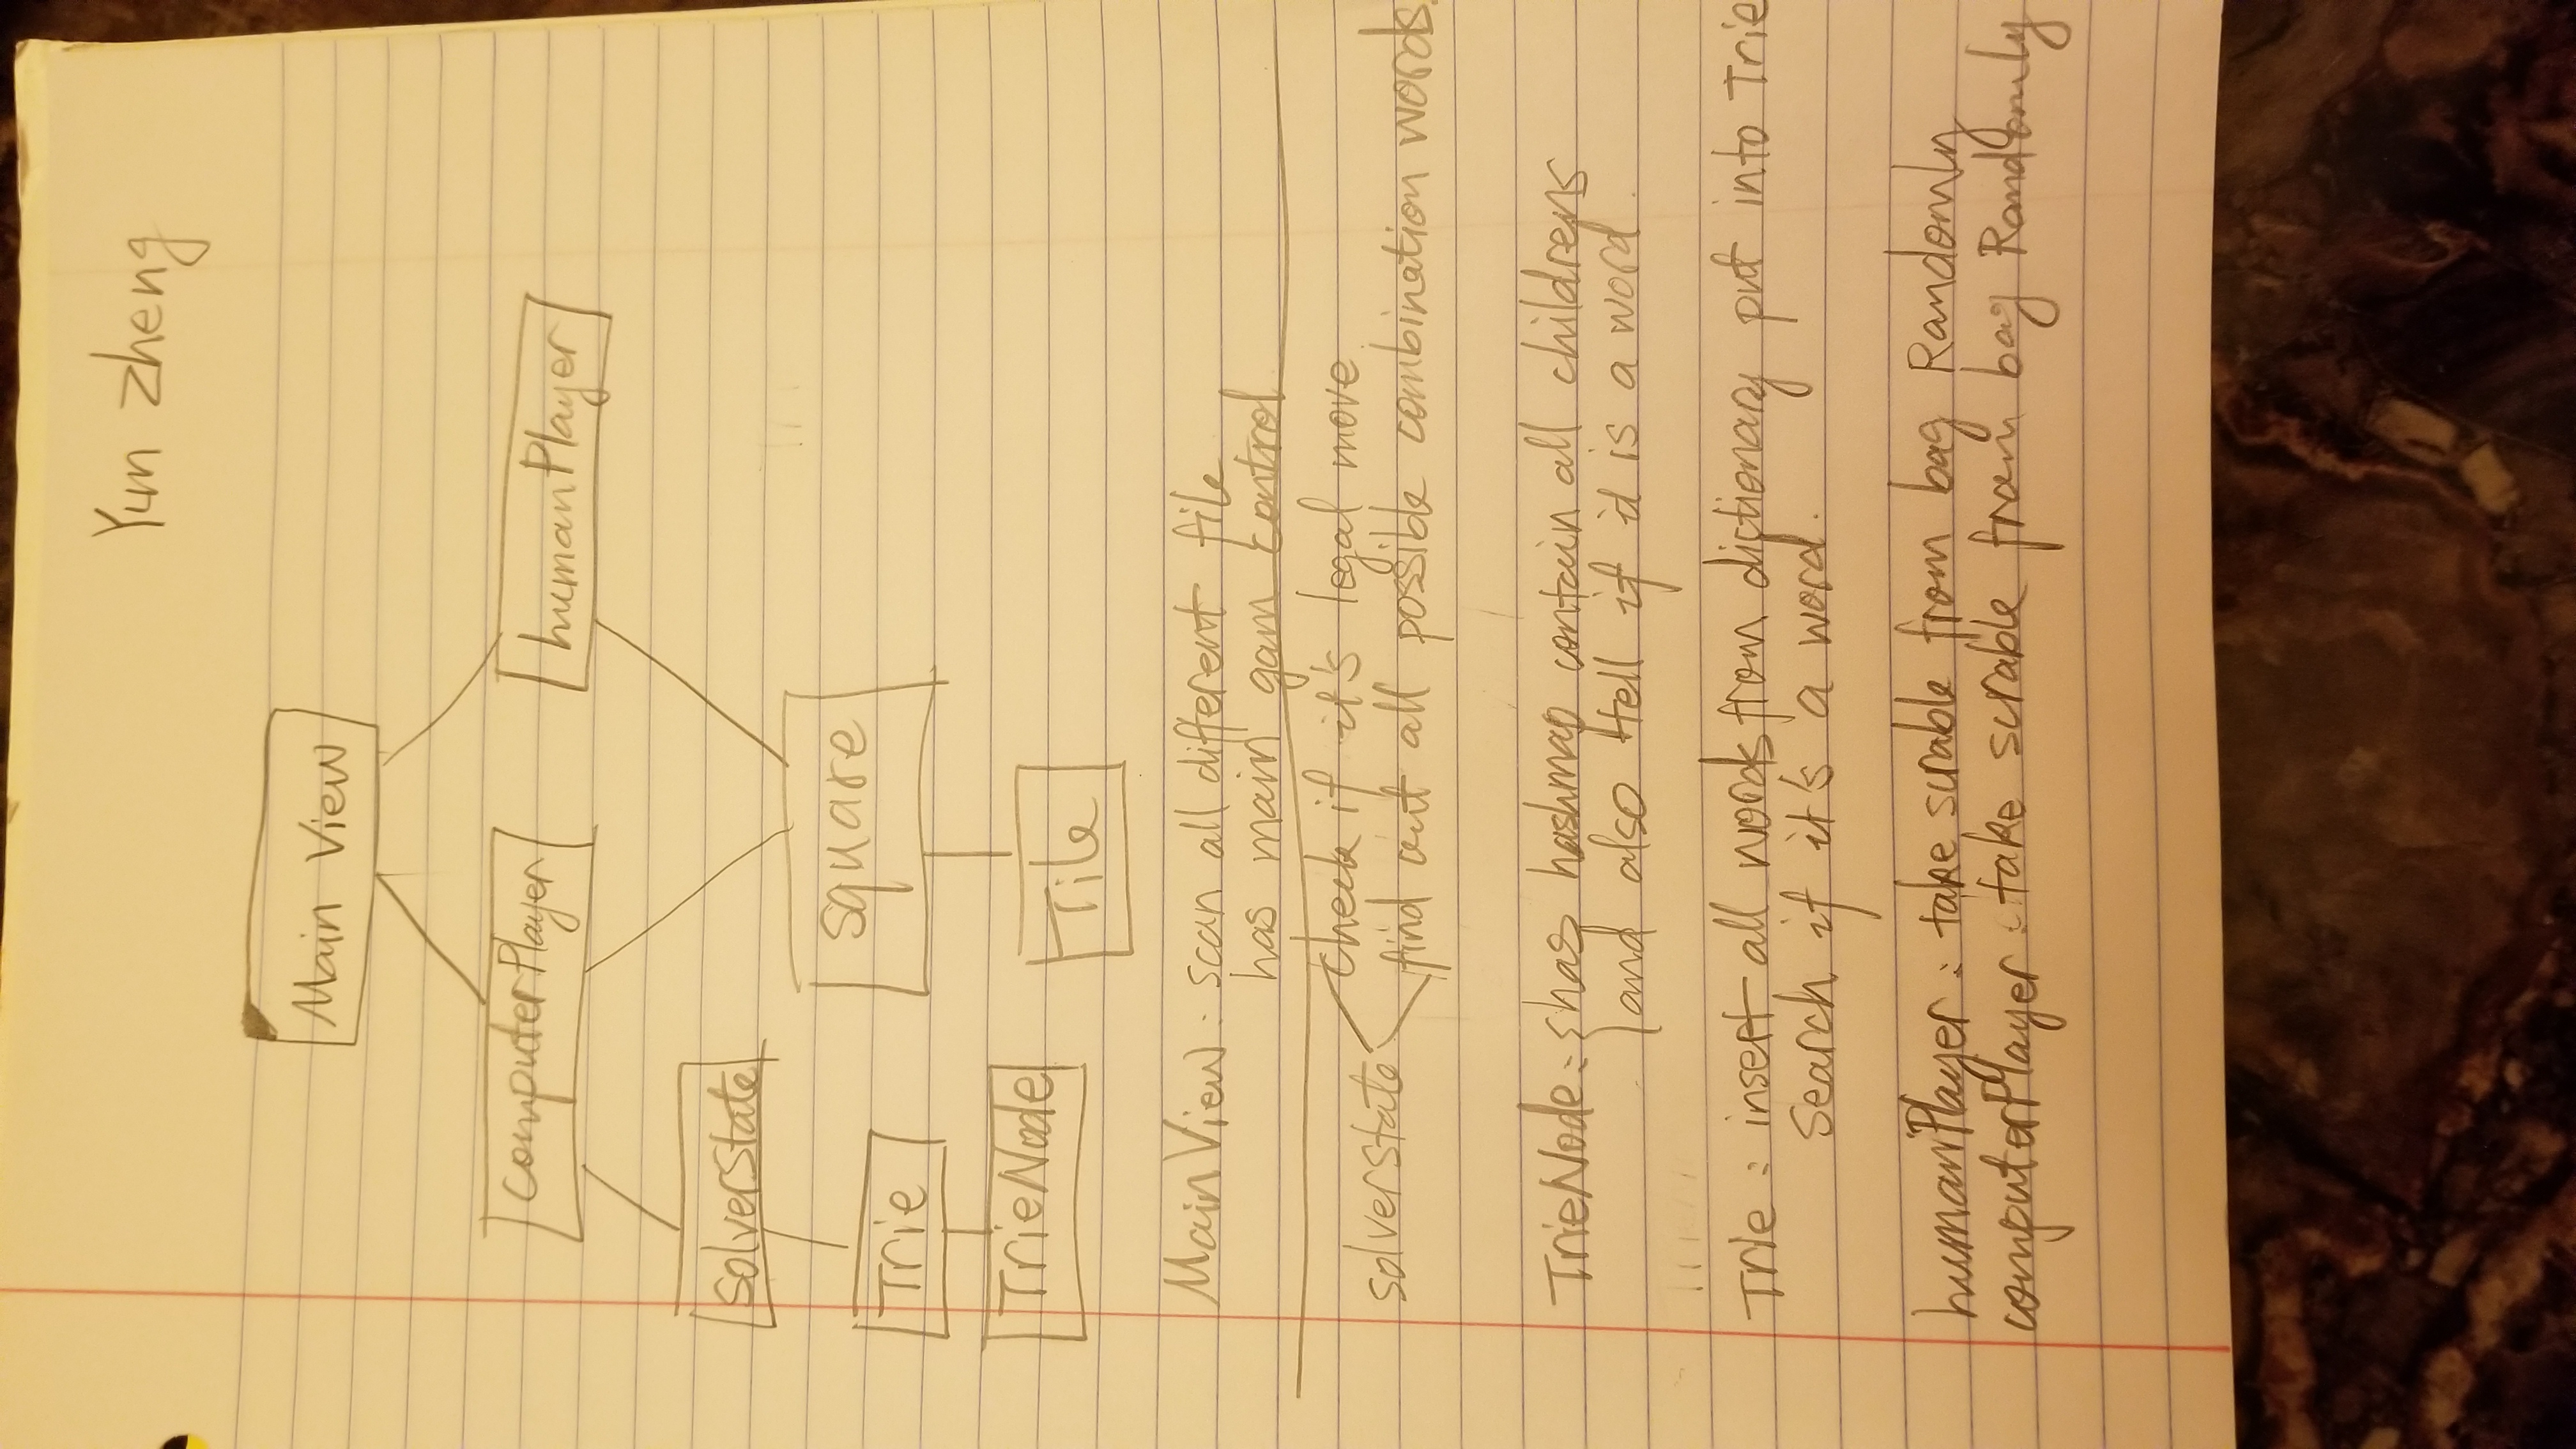 Yun Zheng
Main View
computerPlayer
humanPlayer
solverState
square
Trie
TrieNode
Tile
MainView : scan all different file
has main gam control
solverstate check if it's legal move
find out all possible combination words.
TrieNode : { has hashmap contain all childrens
and also tell if it is a word.
Trie : insert all words from dictionary put into Trie
Search if it's a word.
humanPlayer : take scrable from bag Randomly
computerPlayer : take scrable from bag Randomly